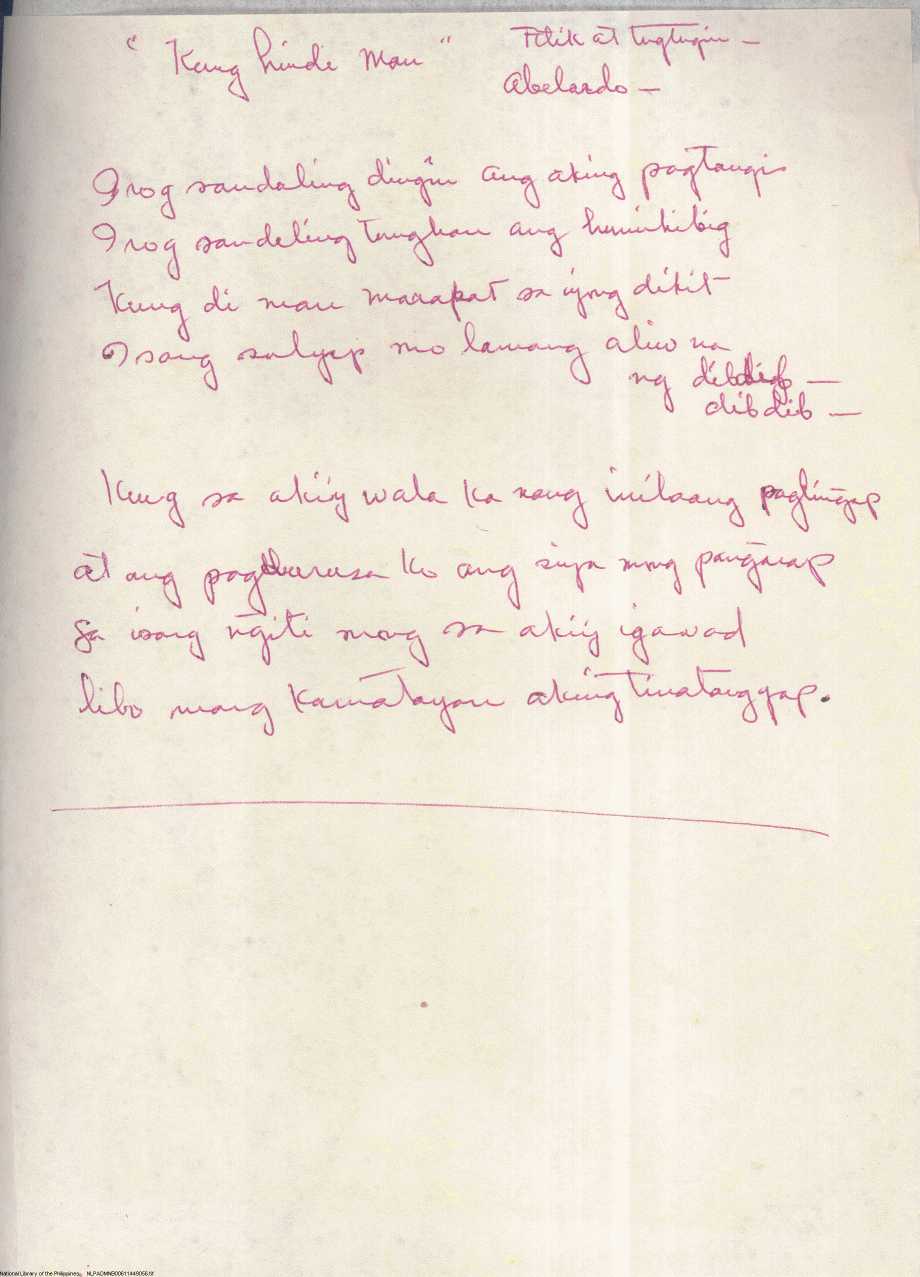 "Kung hindi man"
Titik at tugtugin —
Abelardo —
Irog sandaling dingin ang aking pagtangis
Irog sandaling tunghan ang humihibig
Kung di man marapat sa iyong dikit
Isang sulyap mo lamang aliw na
ng dibdib —
dibdib —
Kung sa akiy wala ka nang inilaang paglingap
at ang pagdurusa ko ang siya mong pangarap
Sa isang ngiti mong sa akiy igawad
libo mang kamatayan aking tinatanggap.
National Library of the Philippines, NLPADMNB00611449056.tif